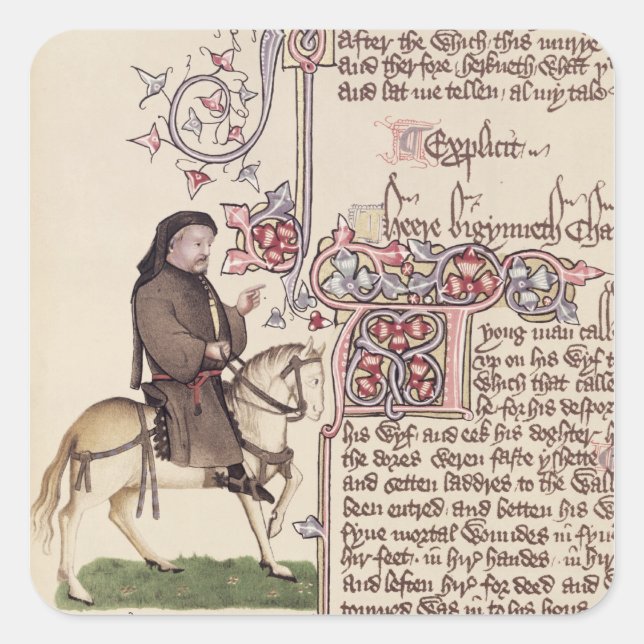 after the which this murye
And therfore herkneth what y
And lat me tellen al my tale
Explicit
Heere bigynneth Cha
yong man call
up on his wyf
Which that calle
he for his despor
his wyf and eek his doghter
the dores weren faste yshette
and setten laddres to the wall
been entred and betten his w
fyue mortal woundes in fyue
hir feet in hir handes in hir
and leften hir for deed and
torned was in to his hous